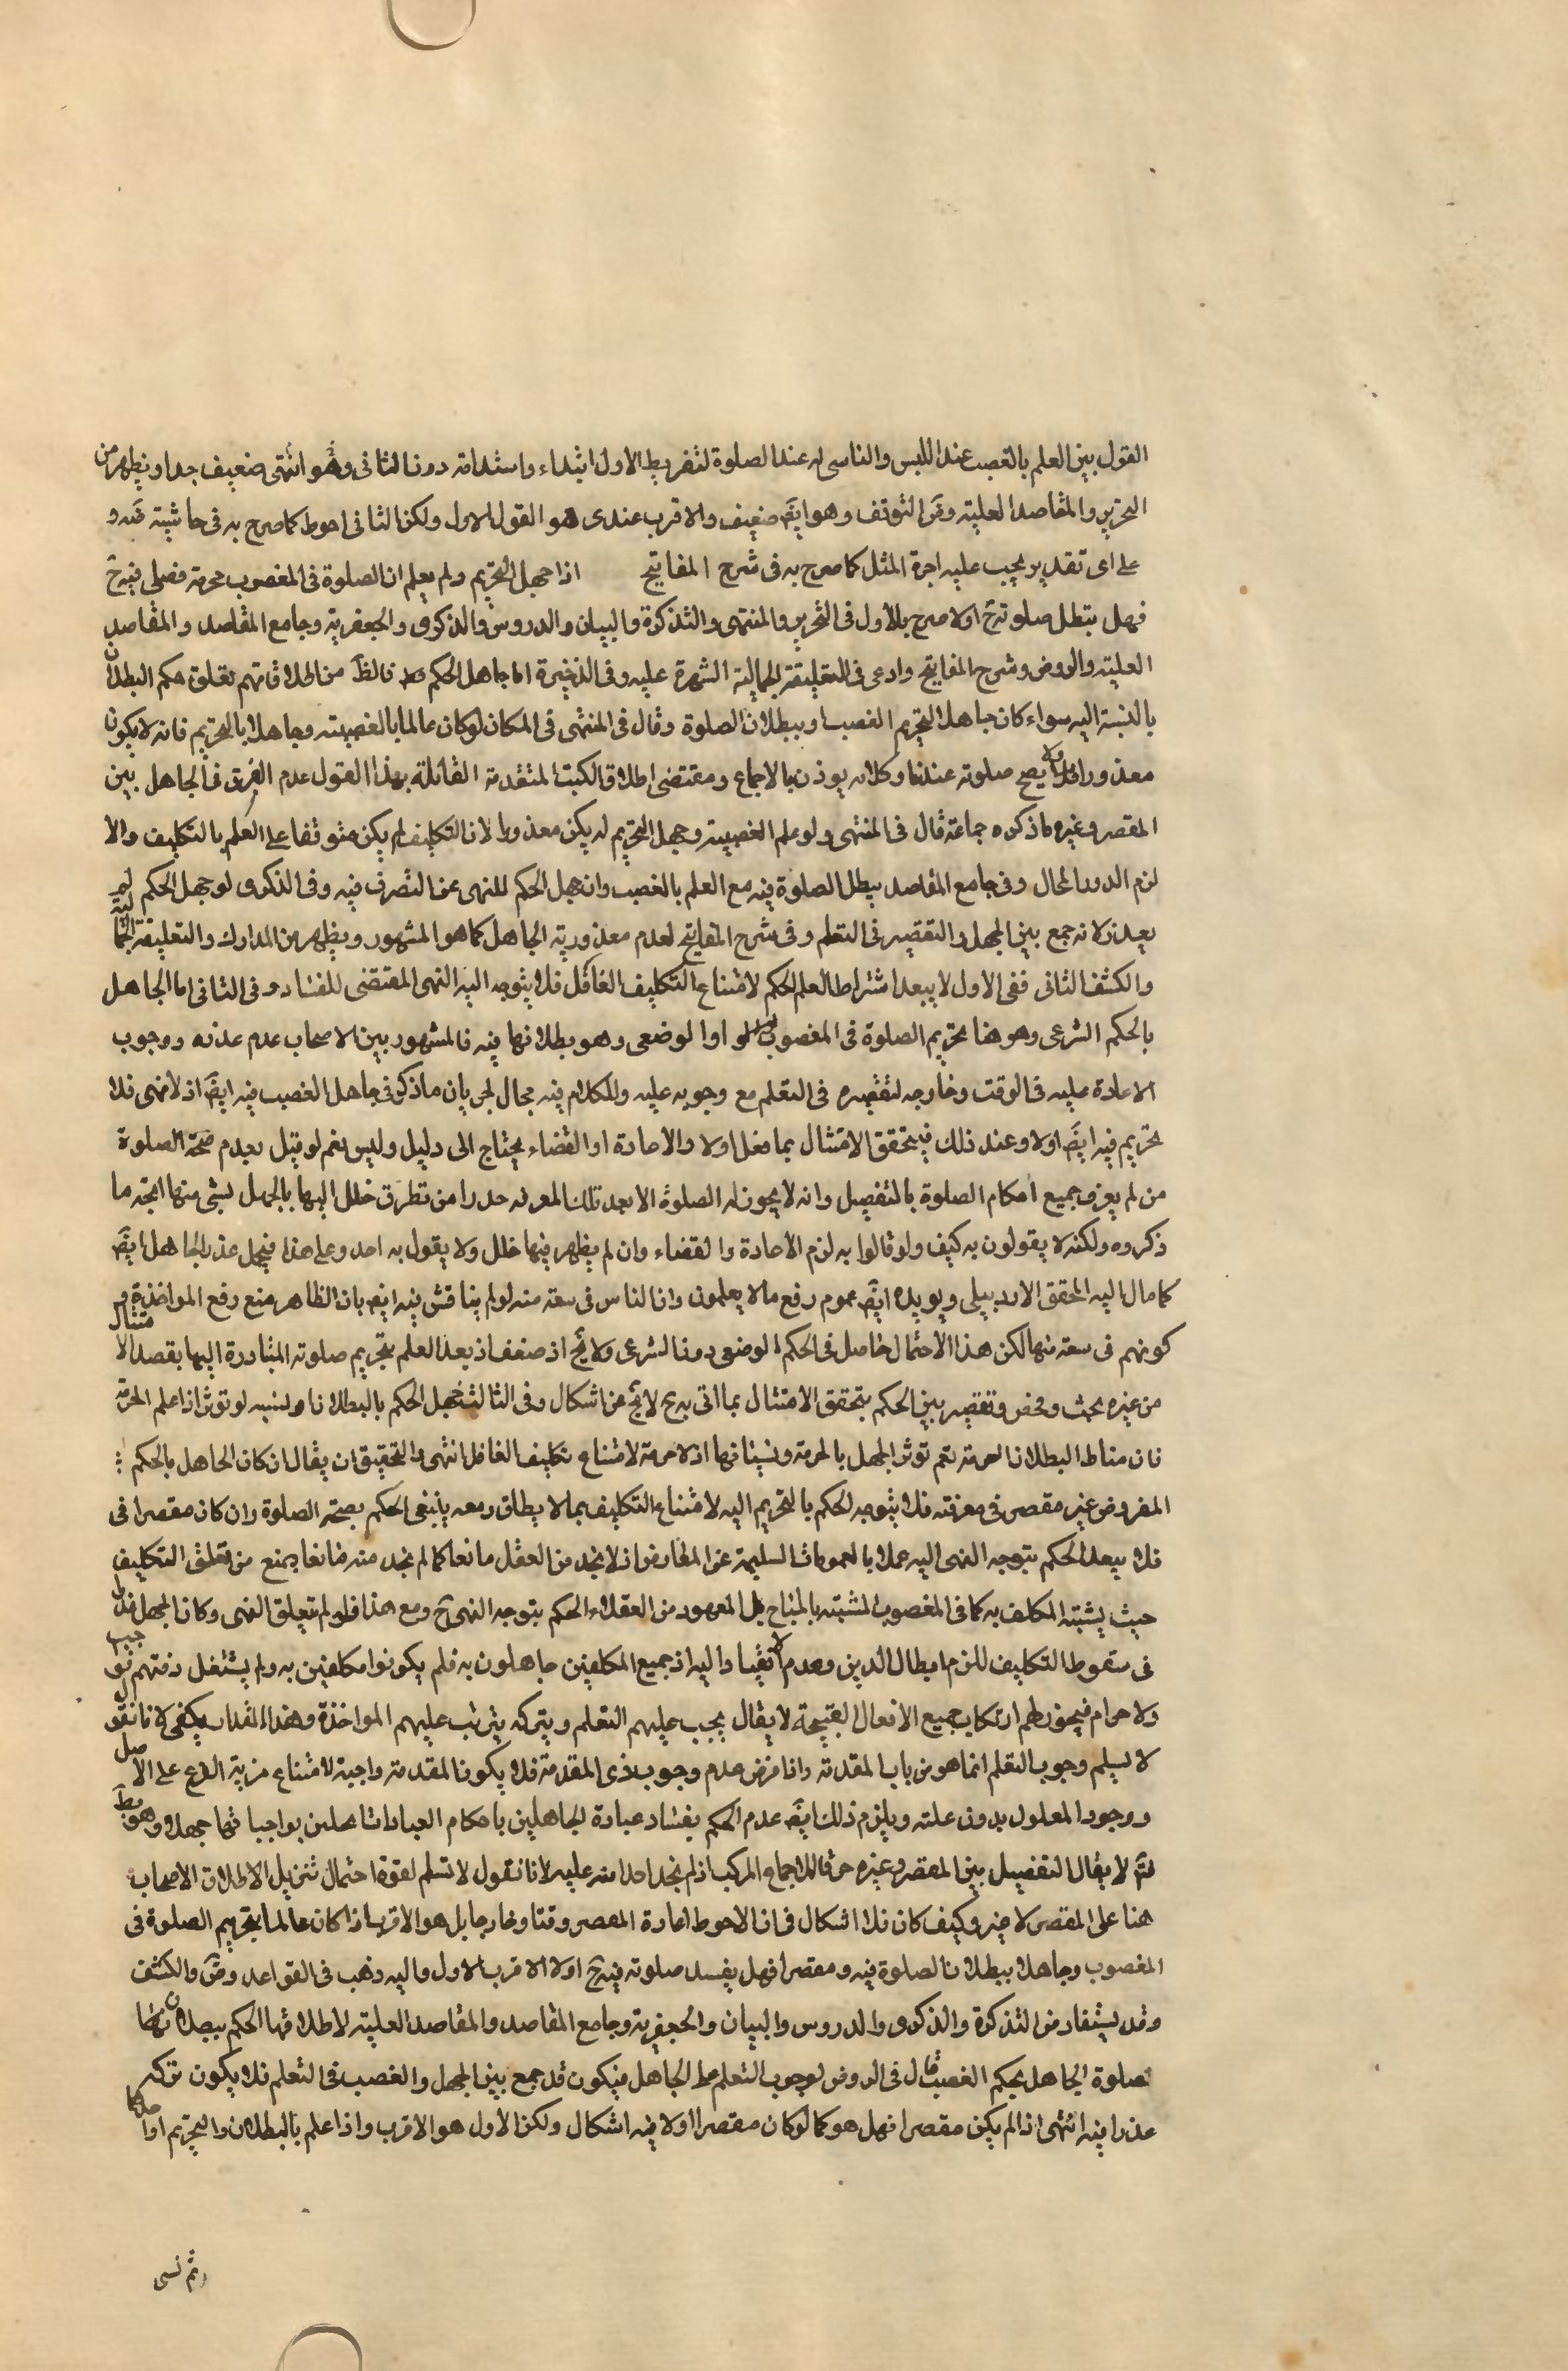 القول بين العلم بالغصب عند اللبس والناسى له عند الصلوة لتفريط الاول ابتداء واستدامة دون الثانى وهو انتهى ضعيف جدا ويظهر من
التحرير والمقاصد العلية التوقف وهو ايضَ ضعيف والاقرب عندى هو القول الاول ولكن الثانى احوط كما صرح به فى حاشية و
على اى تقدير يجب عليه اجرة المثل كما صرح به فى شرح المفاتيح اذا جهل التحريم ولم يعلم ان الصلوة فى المغصوب محرمة فصلى فيه ح
فهل يبطل صلوته ح اولا صرح بالاول فى التحرير والمنتهى والتذكرة والبيان والدروس والذكرى والجعفرية وجامع المقاصد والمقاصد
العلية والروض وشرح المفاتيح وادعى فى التعليقة الجمالية الشهرة عليه وفى الذخيرة اما جاهل الحكم فالظَ من اطلاقاتهم تعلق حكم البطلان
بالنسبة اليه سواء كان جاهل التحريم الغصب او ببطلان الصلوة وقال فى المنتهى فى المكان لو كان عالما بالغصبية وجاهلا بالتحريم فانه لا يكون
معذورا ولا يصح صلوته عندنا وكلامه يوذن بالاجماع ومقتضى اطلاق الكتب المتقدمة القائلة بهذا القول عدم الفرق فى الجاهل بين
المقصر وغيره ما ذكره جماعة قال فى المنتهى ولو علم الغصبية وجهل التحريم لم يكن معذورا لان التكليف لم يكن متوقفا على العلم بالتكليف والا
لزم الدور المحال وفى جامع المقاصد يبطل الصلوة فيه مع العلم بالغصب وان جهل الحكم للنهى عن التصرف فيه وفى الذكرى لو جهل الحكم لم
يعذر لانه جمع بين الجهل والتقصير فى التعلم وفى شرح المفاتيح لعدم معذورية الجاهل كما هو المشهور ويظهر من المدارك والتعليقة الجمالية
والكشف الثانى ففى الاول لا يبعد اشتراط العلم الحكم لامتناع التكليف الغافل فلا يتوجه اليه النهى المقتضى للفساد وفى الثانى اما الجاهل
بالحكم الشرعى وهو هنا تحريم الصلوة فى المغصوب او الوضعى وهو بطلانها فيه فالمشهور بين الاصحاب عدم عذره ووجوب
الاعادة عليه فى الوقت وخارجه لتقصيره فى التعلم مع وجوبه عليه وللكلام فيه مجال لجريان ما ذكر فى جاهل الغصب فيه ايضَ اذ لا نهى فلا
تحريم فيه ايضَ اولا وعند ذلك فيتحقق الامتثال بما فعل اولا والاعادة او القضاء يحتاج الى دليل وليس نعم لو قيل بعدم صحة الصلوة
من لم يعرف جميع احكام الصلوة بالتفصيل وانه لا يجوز له الصلوة الا بعد تلك المعرفة حذرا من تطرق خلل اليها بالجهل لشى منها اتجه ما
ذكروه ولكنه لا يقولون به كيف ولو قالوا به لزم الاعادة والقضاء وان لم يظهر فيها خلل ولا يقول به احد وعلى هذا فيحتمل عذر الجاهل ايضَ
كما مال اليه المحقق الاردبيلى ويويده ايضَ عموم رفع ما لا يعلمون وان الناس فى سعة منه لو لم يناقش فيه ايضَ بان الظاهر منع رفع المواخذة و
كونهم فى سعة منها لكن هذا الاحتمال حاصل فى الحكم الوضعى دون الشرعى ولا يخ اذ ضعف اذ بعد العلم بتحريم صلوته المبادرة اليها بقصد الامتثال
من غيره بحث وفحص وتقصير بين الحكم بتحقق الامتثال بما اتى به ح لا يخ عن اشكال وفى الثالث جهل الحكم بالبطلان او نسيه لو توثر اذا علم الحرمة
فان مناط البطلان الحرمة نعم توثر الجهل بالحرمة ونسيانها اذ لا حرمة لامتناع تكليف الغافل انتهى والتحقيق ان يقال ان كان الجاهل بالحكم
المفروض غير مقصر فى معرفته فلا يتوجه الحكم بالتحريم اليه لامتناع التكليف بما لا يطاق ومعه ينبغى الحكم بصحة الصلوة وان كان مقصرا فى
فلا يبعد الحكم بتوجه النهى اليه عملا بالعمومات السليمة عن المعارض اذ لا نجد من العقل مانعا كما لم نجد منه مانعا ويمنع من تعلق التكليف
حيث يشتبه المكلف به كما فى المغصوب المشتبه بالمباح بل المعهود من العقلاء الحكم بتوجه النهى ح ومع هذا فلو لم يتعلق النهى وكان الجهل عذرا
فى سقوط التكليف للزم ابطال الدين وعدم الانقياد اليه اذ جميع المكلفين جاهلون به فلم يكونوا مكلفين به ولم يشتغل ذمتهم بواجب
ولا حرام فيجوز لهم ارتكاب جميع الافعال القبيحة لا يقال يجب عليهم التعلم وبتركه يترتب عليهم المواخذة وهذا القدر يكفى لانا نقول
لا نسلم وجوب التعلم انما هو من باب المقدمة واذا فرض عدم وجوب ذى المقدمة فلا يكون المقدمة واجبة لامتناع مزية الفرع على الاصل
ووجود المعلول بدون علته ويلزم ذلك ايضَ عدم الحكم بفساد عبادة الجاهلين باحكام العبادات بواجباتها جهلا وهو بط
لا يقال التفصيل بين المقصر وغيره خرق للاجماع المركب اذ لم نجد احدا منه عليه لانا نقول لا نسلم لقوة احتمال تنزيل الاطلاق الاصحاب
هنا على المقصر لا غير وكيف كان فلا اشكال فى ان الاحوط اعادة المقصر وقتا وخارجا بل هو الاقرب اذا كان عالما بتحريم الصلوة فى
المغصوب وجاهلا ببطلان الصلوة فيه ومقصرا فهل يفسد صلوته فيه ح اولا الاقرب الاول واليه ذهب فى القواعد وضَ والكشف
وقد يستفاد من التذكرة والذكرى والدروس والبيان والجعفرية وجامع المقاصد والمقاصد العلية لاطلاقها الحكم ببطلان
صلوة الجاهل بحكم الغصب قال فى الروض لوجوب التعلم على الجاهل فيكون قد جمع بين الجهل والغصب فى التعلم فلا يكون تركه
عذرا فيه انتهى اذا لم يكن مقصرا فهل هو كما لو كان مقصرا اولا فيه اشكال ولكن الاول هو الاقرب واذا علم بالبطلان والتحريم او احدهما
ثم نسى